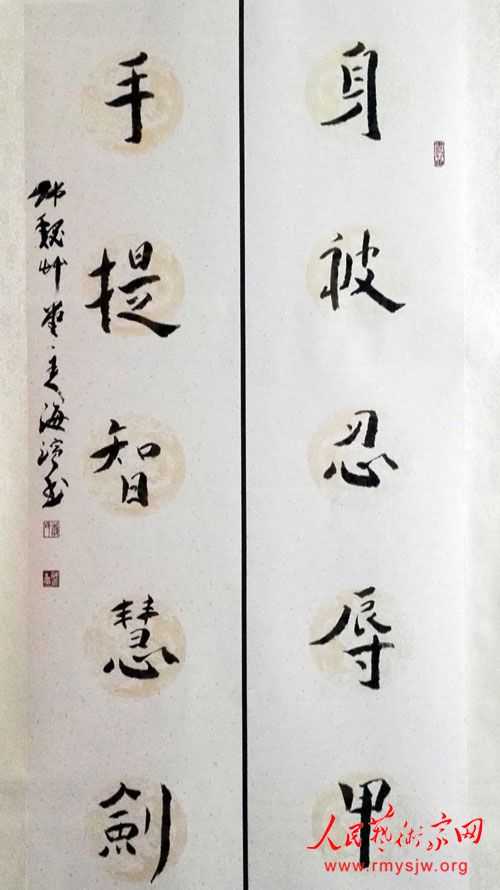 身被忍辱甲
手提智慧劍
人民艺术家网
www.rmysjw.org